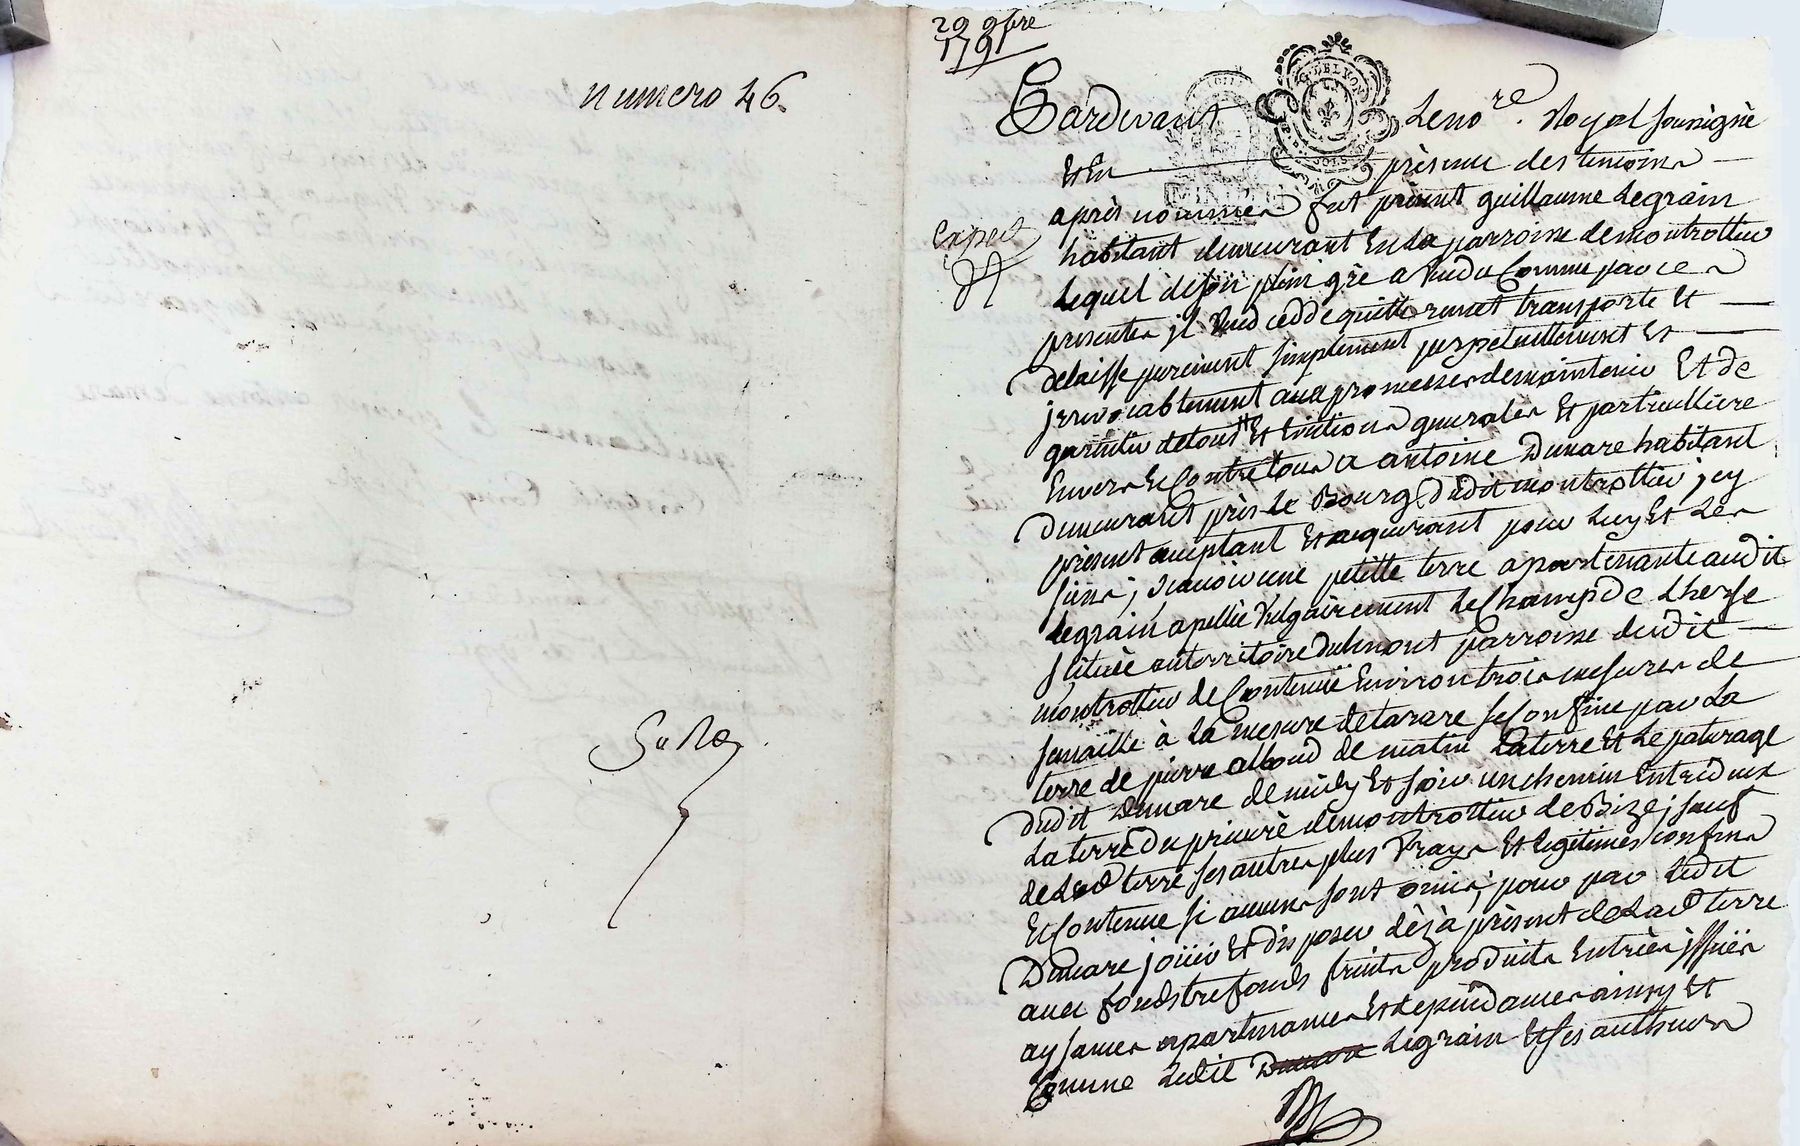 numero 46.
29 9bre
1791
G. DE LYON
Pardevant Le no.re Royal soussigné
Et En présence des temoins
après nommés fut présent guillaume Legrain
Expert
habitant demeurant En La parroisse de montrottier
Lequel de son plein gré a vendu Comme par ces
presentes jl vend cedde quitte remet transporte Et
delaisse purement simplement perpetuellement Et
jrrevocablement avec promesses de maintenir Et de
garentir de tous tt Et Evictions generales Et particulliere
Envers Et Contre tous a antoine Demare habitant
Demeurant près Le Bourg dudit montrottier jcy
présent acceptant Et acquerant pour Luy Et Les
siens; scavoir une petitte terre apartenante audit
Legrain apellée vulgairement Le Champ de Lherse
située au territoire Dulmont parroisse dudit
montrottier de Contenue Environ trois mesures de
semaille à La mesure de tarare se Confine par La
terre de pierre alboud de matin La terre Et Le paturage
dudit Demare de midy Et soir un chemin Entre deux
La terre du prieuré de montrottier de Bize; sauf
de Lad terre ses autres plus vrays Et legitimes confins
Et Contenue si aucuns sont omis; pour par Ledit
Demare joüir Et disposer dèzà présent de Lad terre
avec fonds tresfonds fruits produits Entrées jssües
aysances apartenances Et dependances ainsy Et
Comme Ledit Demare Legrain Et ses autheurs